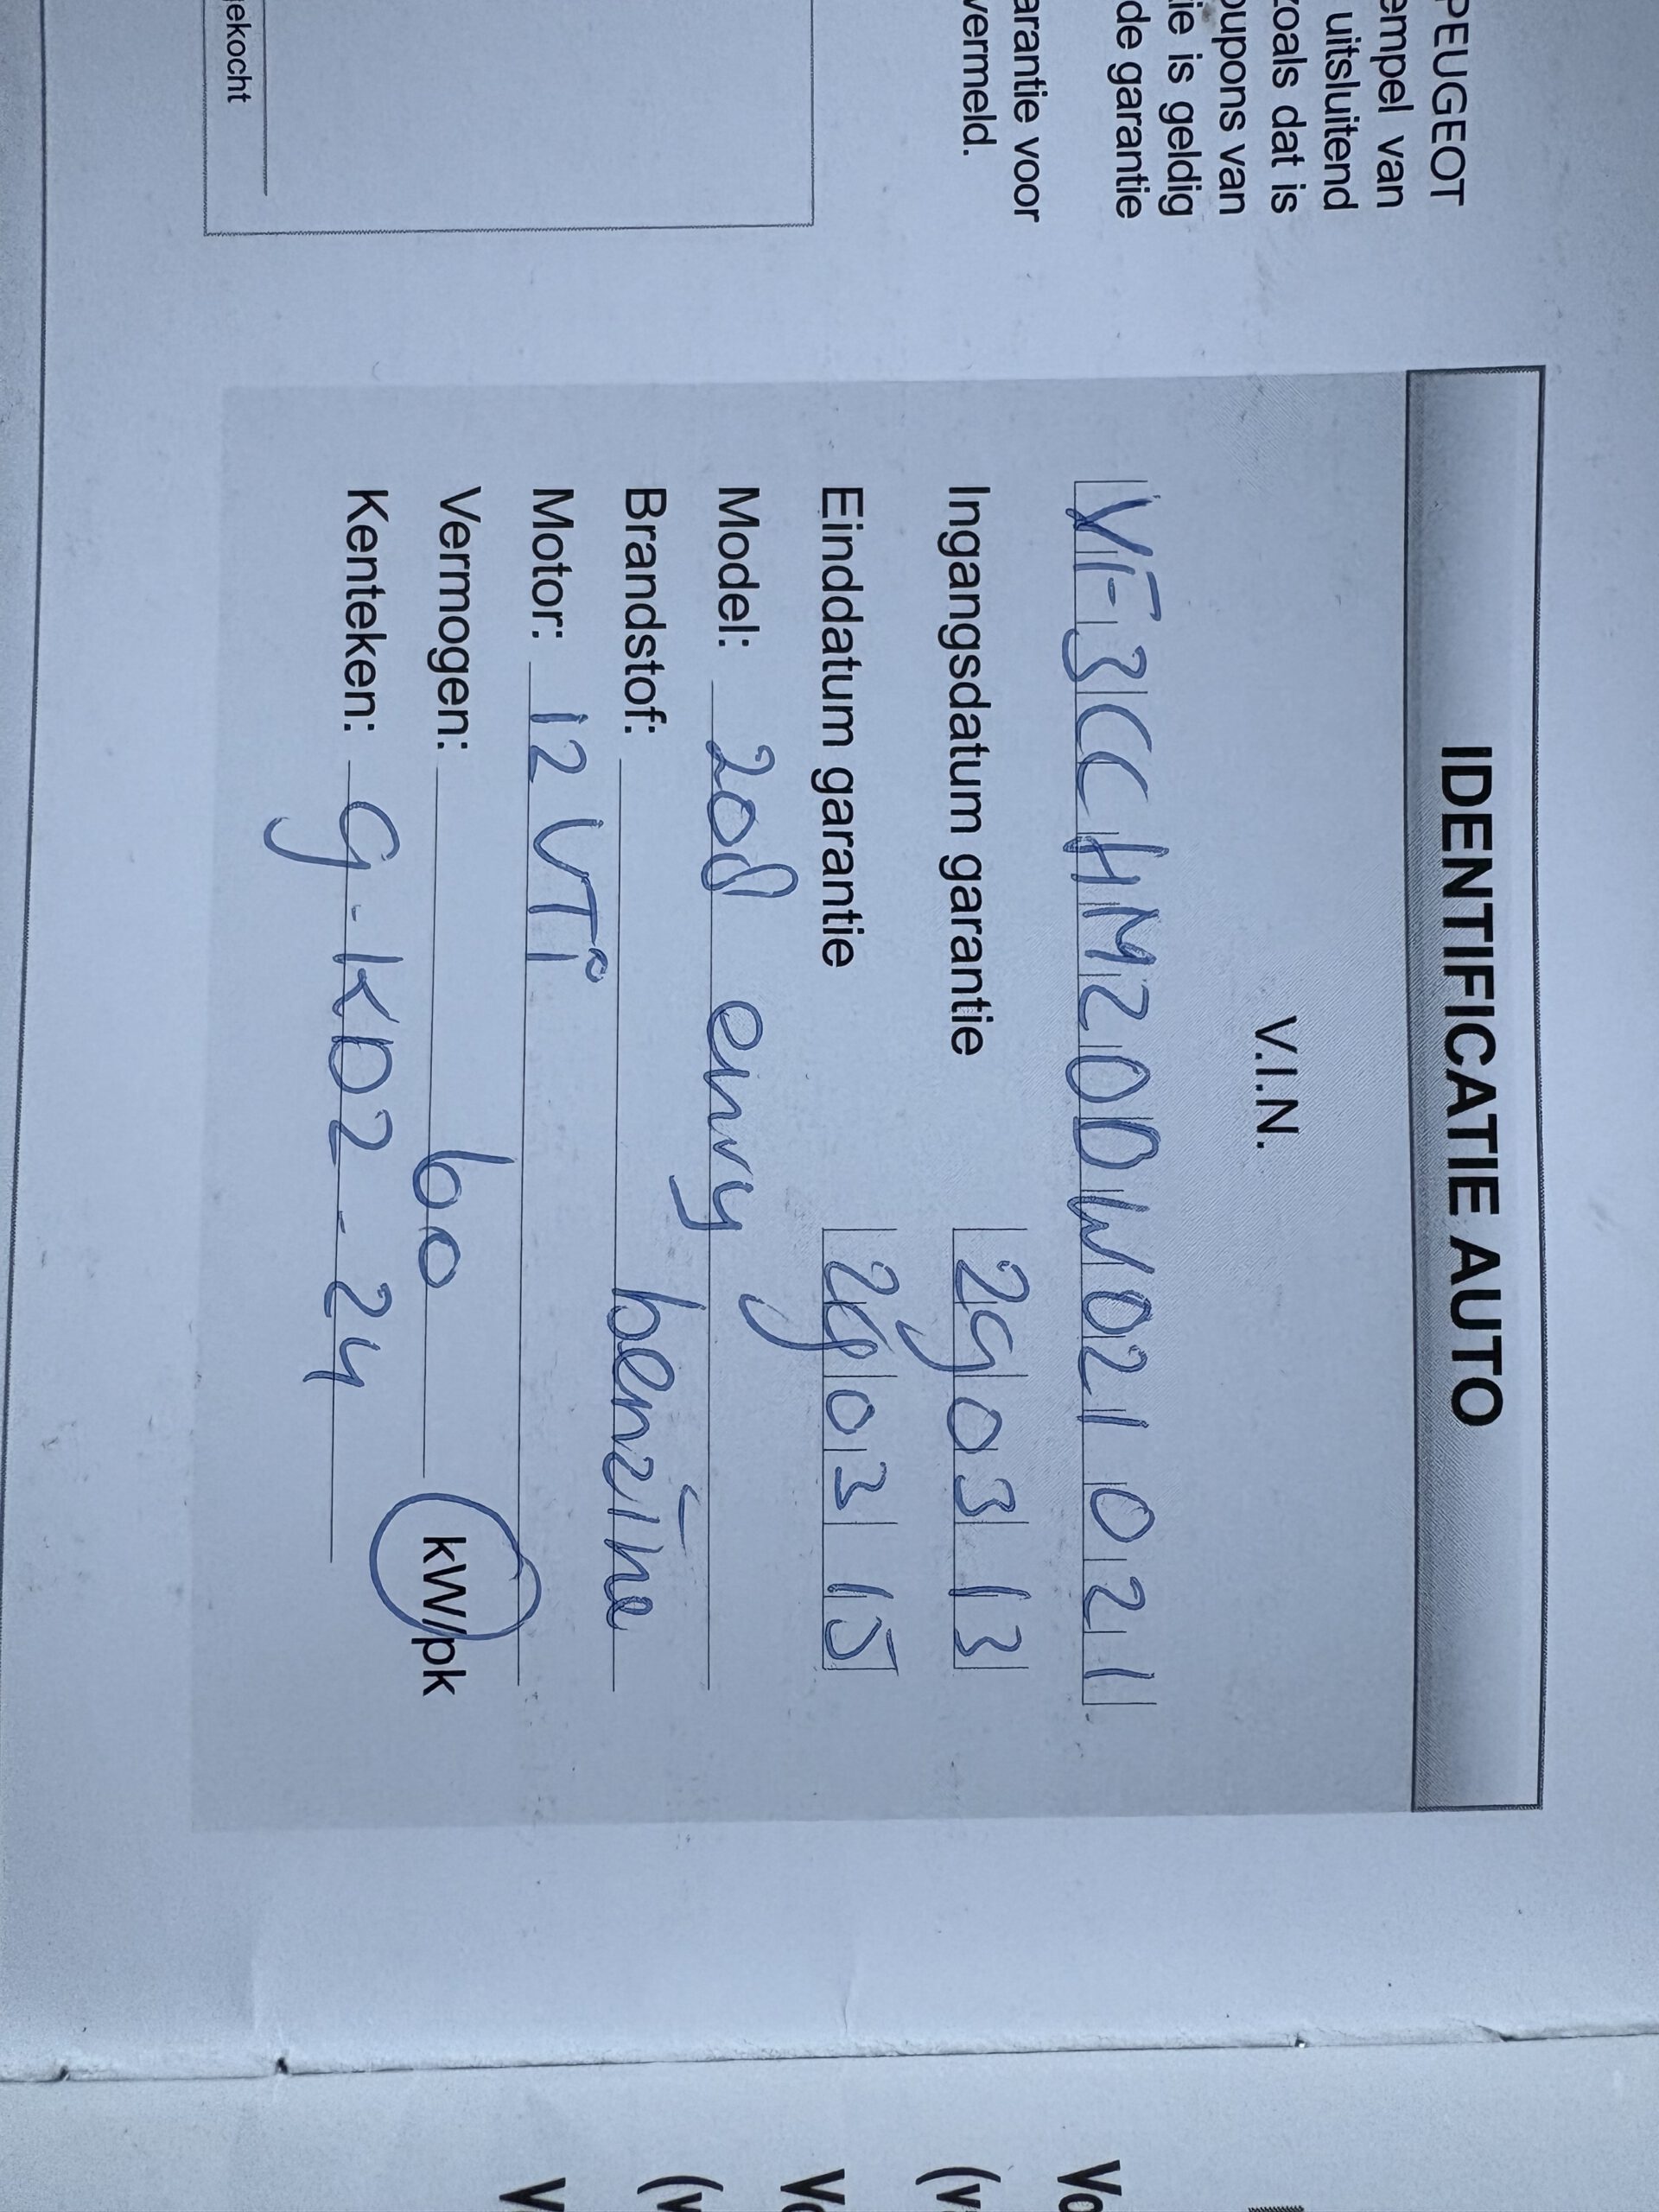 PEUGEOT
empel van
uitsluitend
zoals dat is
oupons van
ie is geldig
de garantie
arantie voor
vermeld.
gekocht
IDENTIFICATIE AUTO
V.I.N.
VF3CCHMZ0DW021021
Ingangsdatum garantie 29 03 13
Einddatum garantie 28 03 15
Model: 208 envy
Brandstof: benzine
Motor: 12 VTi
Vermogen: 60 kW/pk
Kenteken: 9-KDZ-24